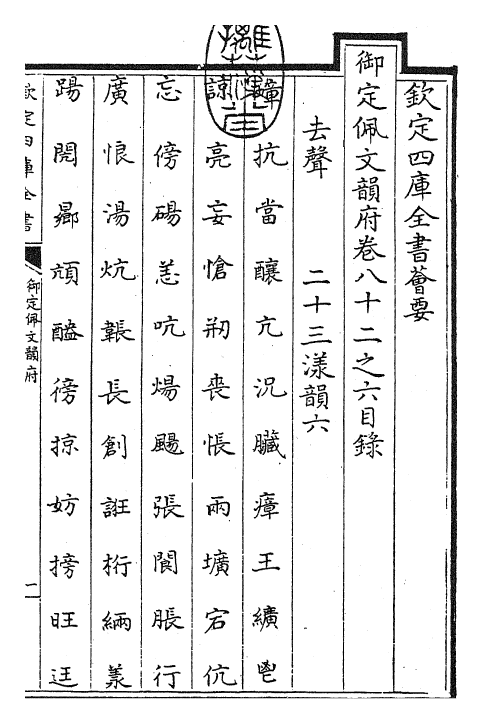 欽定四庫全書薈要
御定佩文韻府卷八十二之六目錄
去聲 二十三漾韻六
抗 當 釀 亢 況 臟 瘴 王 纊 鬯
諒 亮 妄 愴 剙 喪 悵 兩 壙 宕 伉
忘 傍 碭 恙 吭 煬 颺 張 閬 脹 行
廣 悢 湯 炕 韔 長 創 誑 桁 緉 羕
踼 閌 曏 頏 醠 徬 掠 妨 搒 旺 迋
欽定四庫全書
御定佩文韻府
一